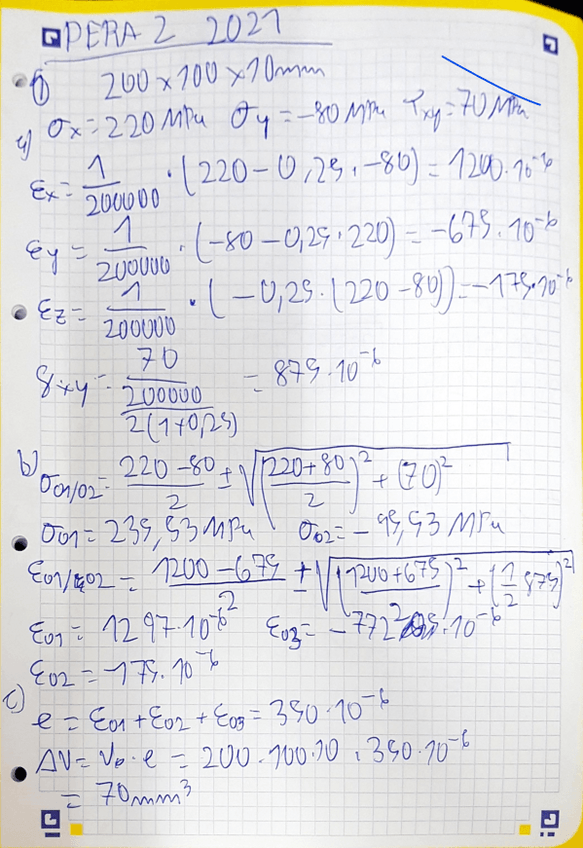 OPERA 2 2021
1) 200 x 100 x 10mm
a) σx = 220 MPa σy = -80 MPa τxy = 70 MPa
εx = 1/200000 · (220 - 0,25 · -80) = 1200 · 10^-6
εy = 1/200000 · (-80 - 0,25 · 220) = -675 · 10^-6
εz = 1/200000 · (-0,25 · (220 - 80)) = -175 · 10^-6
γxy = 70/(200000/2(1+0,25)) = 875 · 10^-6
b) σ01/02 = (220 - 80)/2 ± √(((220 + 80)/2)^2 + (70)^2)
σ01 = 235,53 MPa σ02 = -95,53 MPa
ε01/02 = (1200 - 675)/2 ± √(((1200 + 675)/2)^2 + (1/2 875)^2)
ε01 = 1297 · 10^-6 ε03 = -772 · 10^-6
ε02 = -175 · 10^-6
c)
e = ε01 + ε02 + ε03 = 350 · 10^-6
ΔV = V0 · e = 200 · 100 · 10 · 350 · 10^-6
= 70 mm³